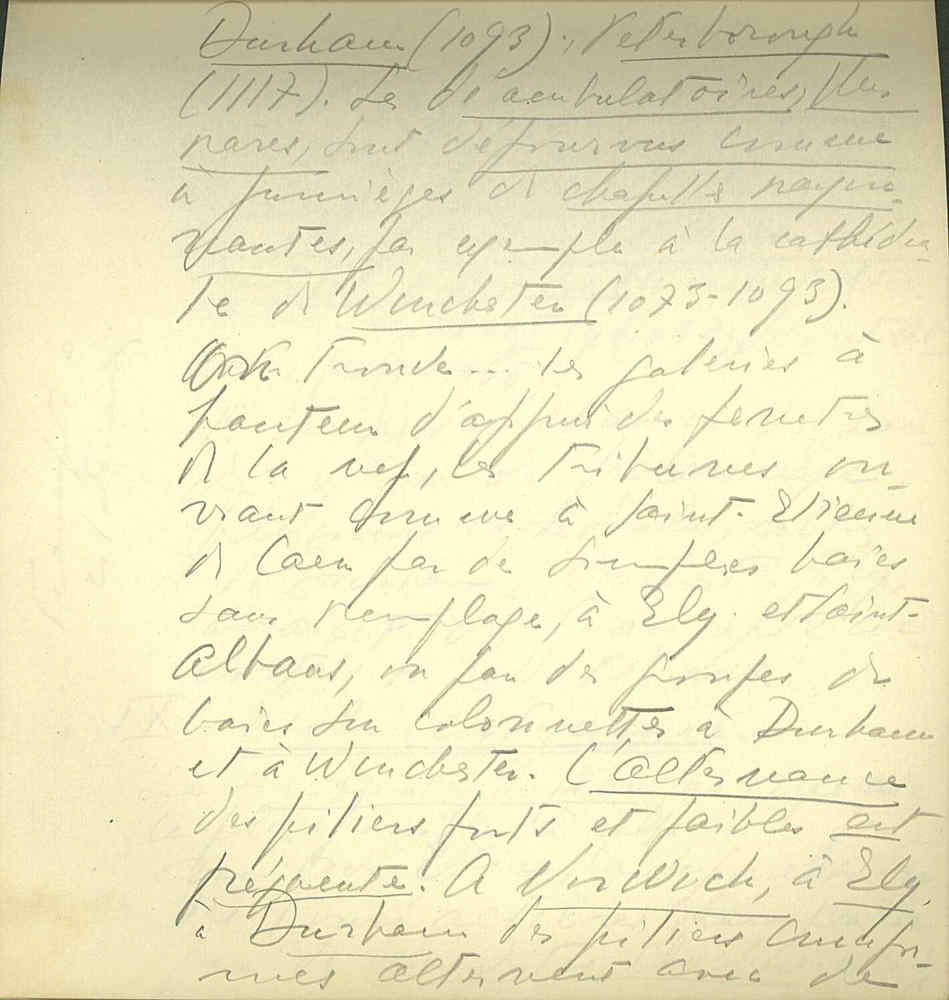 Durham (1093); Peterborough
(1117). Les déambulatoires, plus
rares, sont dépourvus comme
à Jumièges de chapelles rayon-
nantes, par exemple à la cathédra-
le de Winchester (1073-1093).
On trouve... des galeries à
hauteur d'appui des fenetres
de la nef, les tribunes ou-
vrant comme à Saint-Etienne
de Caen par de simples baies
sans remplage, à Ely et Saint-
Albans, ou par des groupes de
baies sur colonnettes à Durham
et à Winchester. L'alternance
des piliers forts et faibles est
fréquente. A Norwich, à Ely,
à Durham des piliers compo-
mes alternent avec de